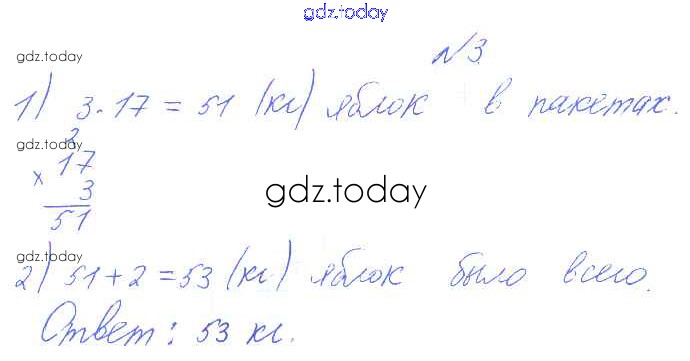 gdz.today
№3
gdz.today
1) 3·17=51 (кг) яблок в пакетах.
gdz.today
2
×17
3
51
gdz.today
gdz.today
2) 51+2=53 (кг) яблок было всего.
gdz.today
Ответ: 53 кг.